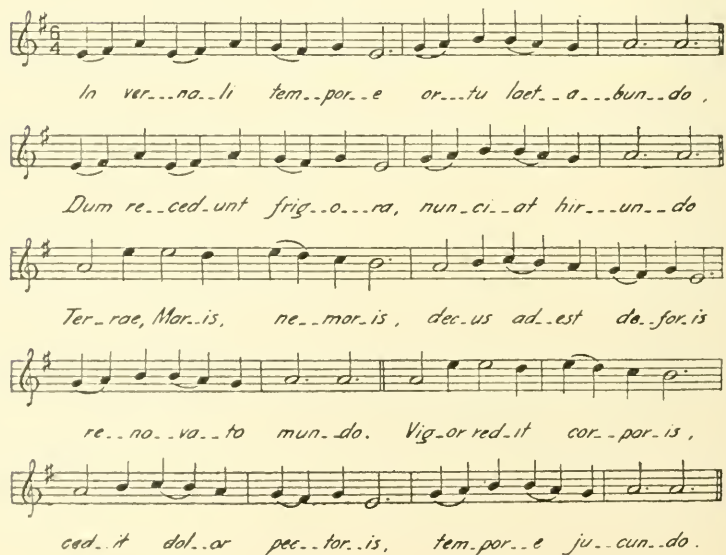 6
4
In ver...na..li tem...por..e or...tu laet..a...bun..do,
Dum re..ced.unt frig..o..ra, nun.ci..at hir...un...do
Ter..rae, Mar..is, ne..mor.is, dec.us ad..est de.for.is
re..no..va..to mun..do. Vig.or red.it cor..por.is,
ced..it dol..or pec..tor.is, tem.por..e ju..cun..do.